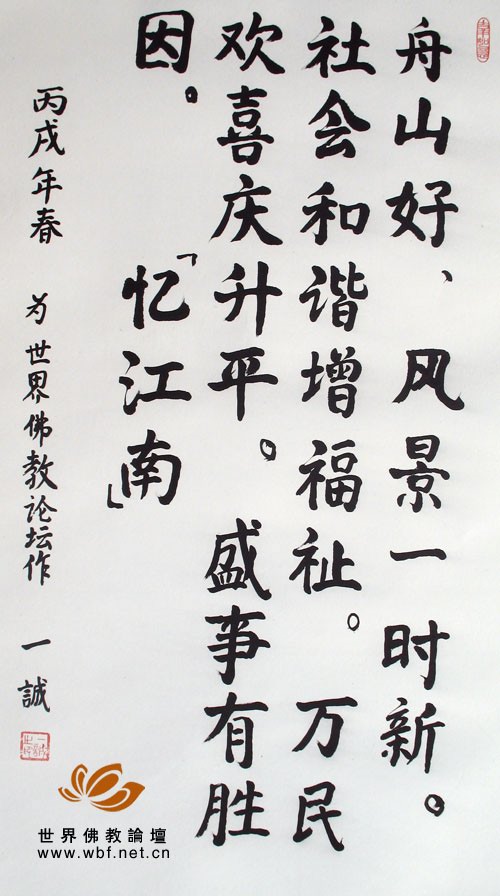 舟山好、风景一时新。
社会和谐增福祉。万民
欢喜庆升平。盛事有胜
因。
「忆江南」
丙戌年春 为世界佛教论坛作 一誠
世界佛教論壇
www.wbf.net.cn